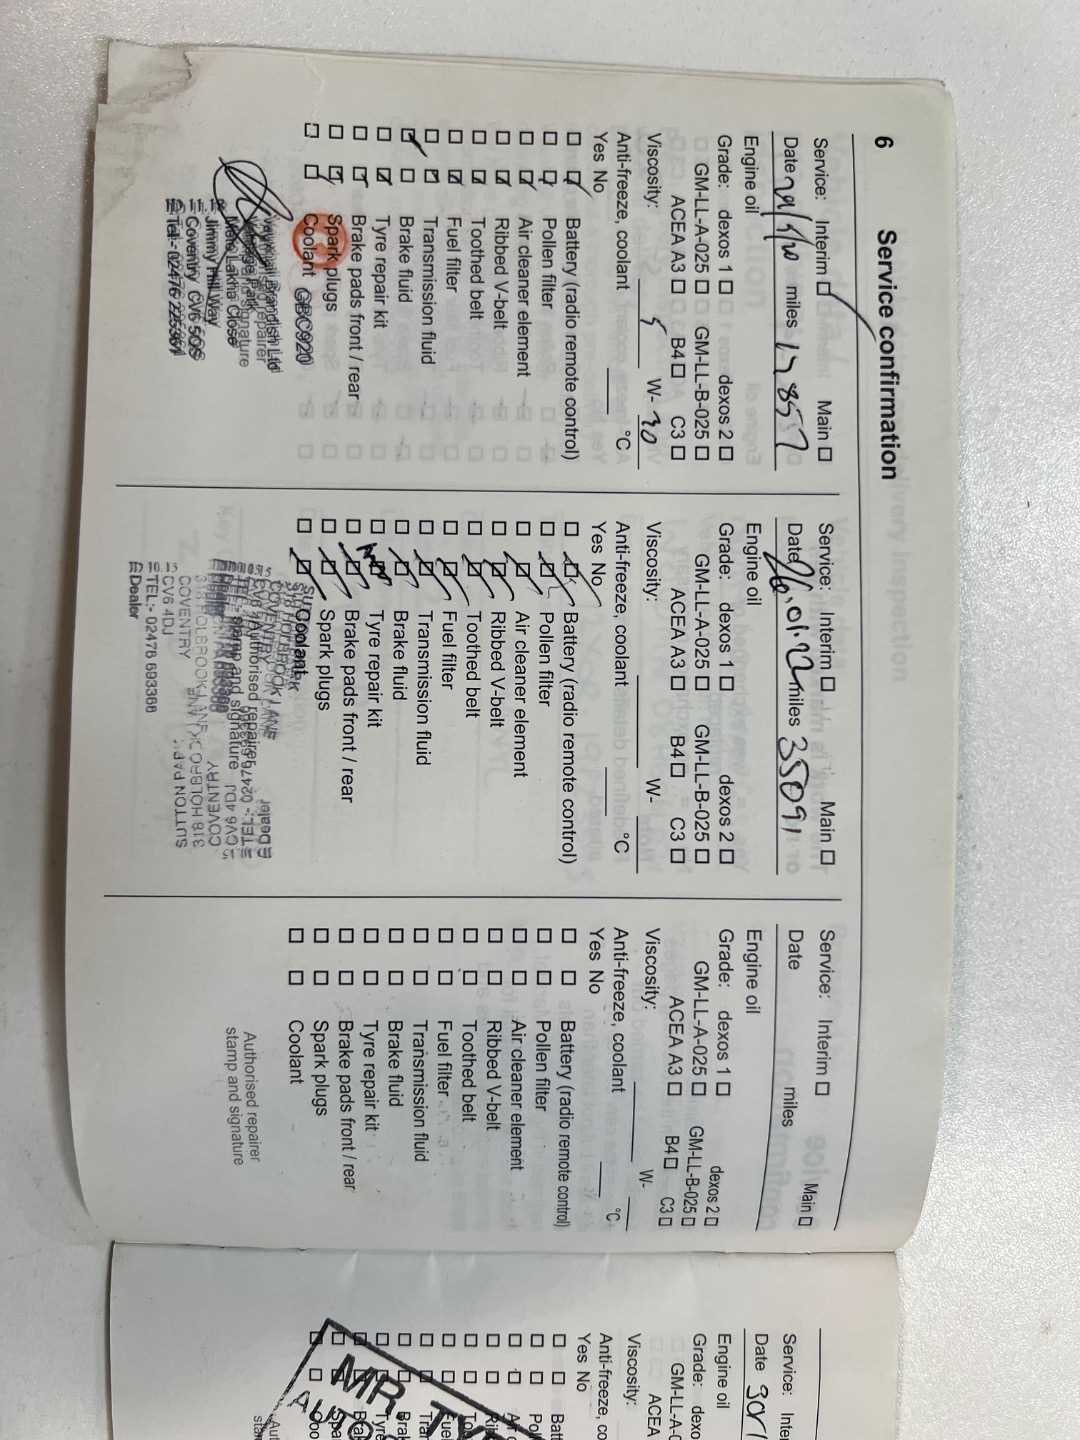 6 Service confirmation
Service: Interim Main
Date miles 17857
Engine oil
Grade: dexos 1 dexos 2
GM-LL-A-025 GM-LL-B-025
ACEA A3 B4 C3
Viscosity: 5 W- 30
Anti-freeze, coolant °C
Yes No
Battery (radio remote control)
Pollen filter
Air cleaner element
Ribbed V-belt
Toothed belt
Fuel filter
Transmission fluid
Brake fluid
Tyre repair kit
Brake pads front / rear
Spark plugs
Coolant GBC920
Vauxhall Brandish Ltd
Lakha Close
Jimmy Hill Way
Coventry CV6 5OS
Service: Interim Main
Date 26.01.12 miles 35091
Engine oil
Grade: dexos 1 dexos 2
GM-LL-A-025 GM-LL-B-025
ACEA A3 B4 C3
Viscosity: W-
Anti-freeze, coolant °C
Yes No
Battery (radio remote control)
Pollen filter
Air cleaner element
Ribbed V-belt
Toothed belt
Fuel filter
Transmission fluid
Brake fluid
Tyre repair kit
Brake pads front / rear
Spark plugs
Coolant
Authorised repairer
stamp and signature
318 HOLBROOK LANE
COVENTRY
CV6 4DJ
TEL:- 02476 693366
Dealer
Service: Interim Main
Date miles
Engine oil
Grade: dexos 1 dexos 2
GM-LL-A-025 GM-LL-B-025
ACEA A3 B4 C3
Viscosity: W-
Anti-freeze, coolant °C
Yes No
Battery (radio remote control)
Pollen filter
Air cleaner element
Ribbed V-belt
Toothed belt
Fuel filter
Transmission fluid
Brake fluid
Tyre repair kit
Brake pads front / rear
Spark plugs
Coolant
Authorised repairer
stamp and signature
Service: Inter
Date 30
Engine oil
Grade: dexo
GM-LL-A-0
ACEA
Viscosity:
Anti-freeze, co
Yes No
Batt
Pol
MR. TY
AUTO